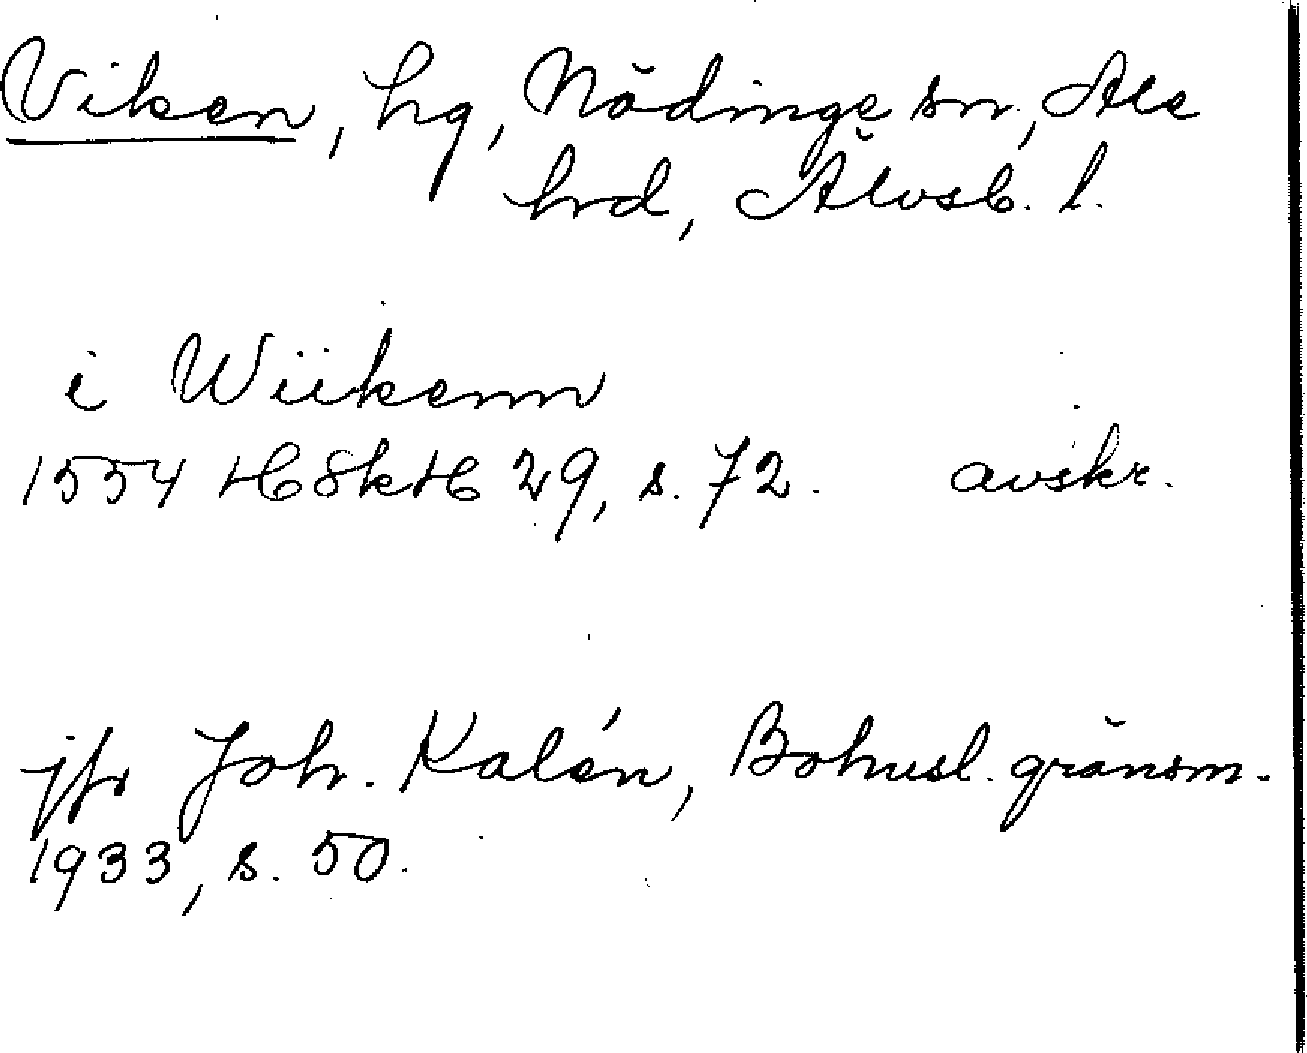 Viken, hg, Nödinge sn, Ale
hrd, Älvsb. l.
i Wiikenn
1554 HSkH 29, s. 72. avskr.
jfr Joh. Kalén, Bohusl. gränsm.
1933, s. 50.